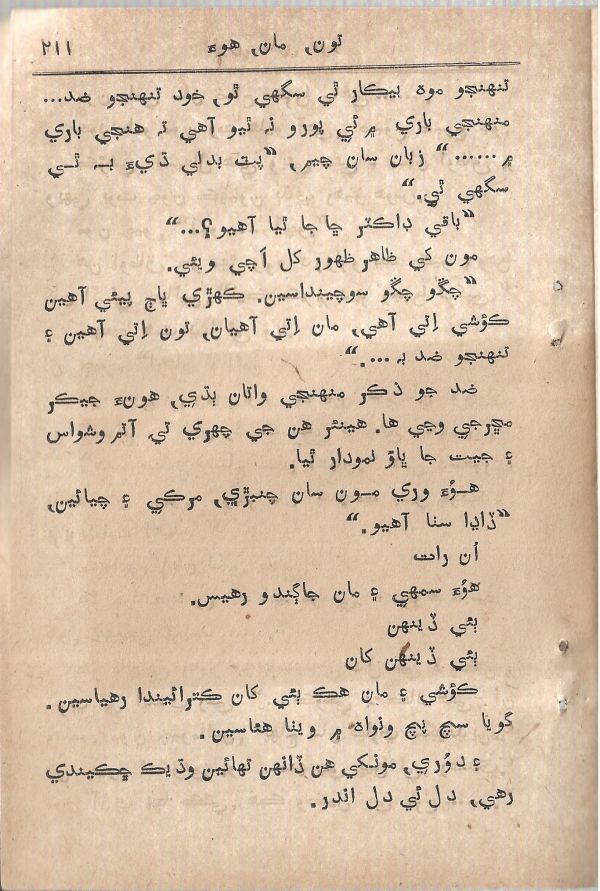 تون, مان, هوءَ ٢١١
تنهنجو موه بيڪار ٿي سگهي ٿو, خود تنهنجو ضد...
منهنجي باري ۾ ئي پورو نہ ٿيو آهي تہ هنجي باري
۾......“ زبان سان چيم, ”پٽ بدلي ڌيءَ بہ ٿي
سگهي ٿي.“
”باقي ڊاڪٽر ڇا جا ٿيا آهيو؟...“
مون کي ظاهر ظهور کل اَچي ويئي.
”چڱو چڱو سوچينداسين. ڪهڙي ڀاڄ پيئي آهين
ڪؤشي اِتي آهي, مان اِتي آهيان, تون اِتي آهين ۽
تنهنجو ضد بہ ....“
ضد جو ذڪر منهنجي واتان ٻڌي, هوءَ جيڪر
مڇرجي وڃي ها. هينئر هن جي چهري تي آتم وشواس
۽ جيت جا ڀاوَ نمودار ٿيا.
هوُءَ وري مون سان چنبڙي, مرڪي ۽ چيائين,
”ڏاڍا سٺا آهيو.“
اُن رات
هوُءَ سمهي ۽ مان جاڳندو رهيس.
ٻئي ڏينهن
ٻئي ڏينهن کان
ڪؤشي ۽ مان هڪ ٻئي کان ڪترائيندا رهياسين.
گويا سچ پچ ونواه ۾ ويٺا هئاسين.
۽ دوُري, مونکي هن ڏانهن تهائين وڌيڪ ڇڪيندي
رهي, دل ئي دل اندر.